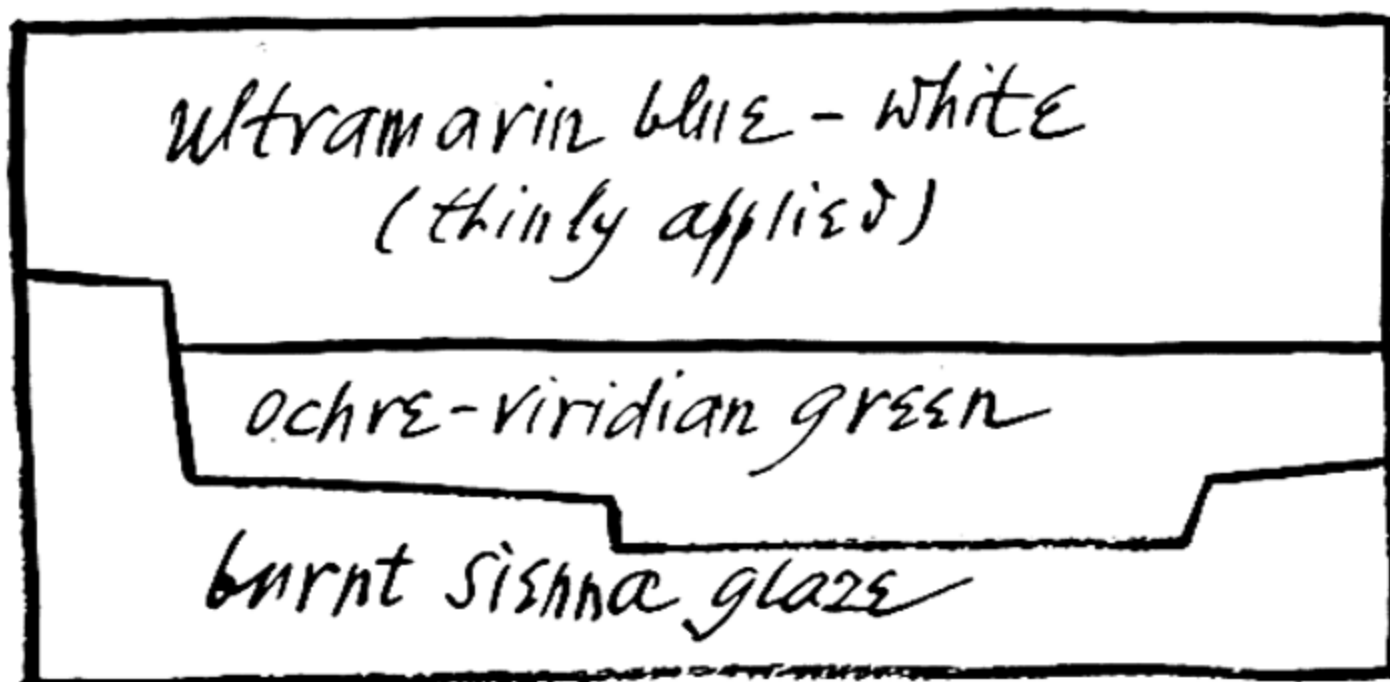 ultramarin blue - white
(thinly applied)
ochre-viridian green
burnt sienna glaze